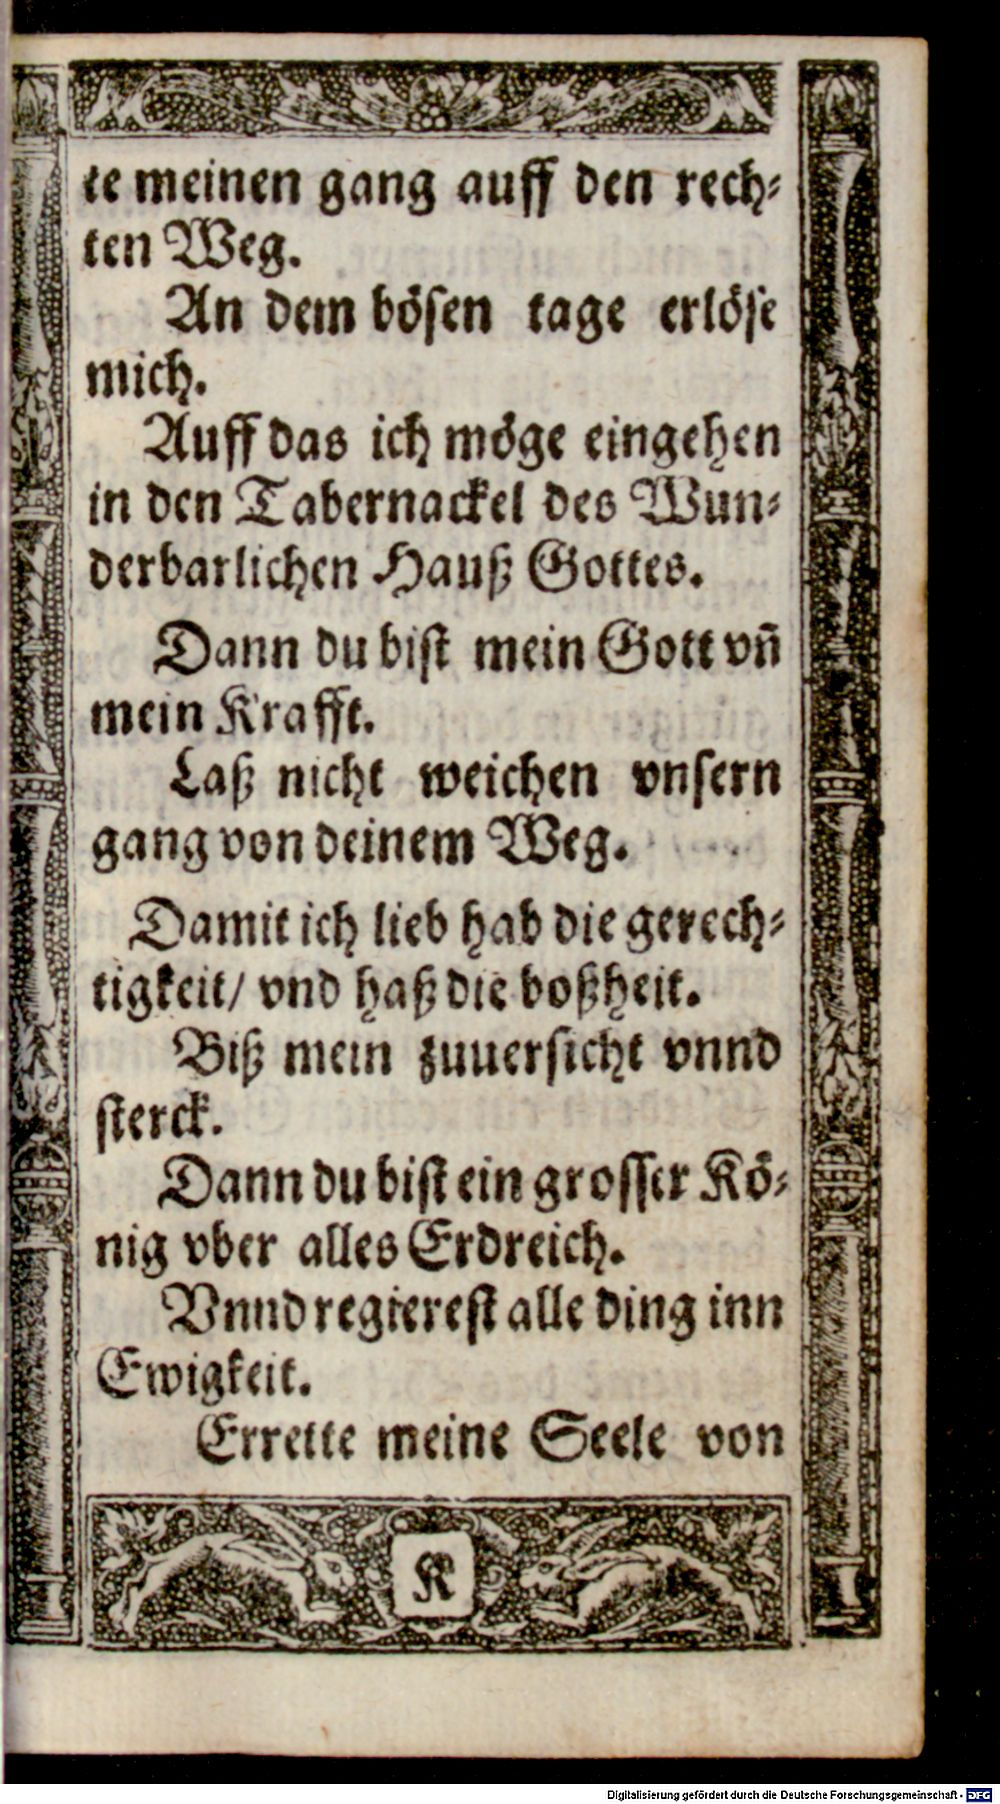 te meinen gang auff den rech⸗
ten Weg.
An dem bösen tage erlöse
mich.
Auff das ich möge eingehen
in den Tabernackel des Wun⸗
derbarlichen Hauß Gottes.
Dann du bist mein Gott vn̄
mein Krafft.
Laß nicht weichen vnsern
gang von deinem Weg.
Damit ich lieb hab die gerech⸗
tigkeit/ vnd haß die boßheit.
Biß mein zuuersicht vnnd
sterck.
Dann du bist ein grosser Kö⸗
nig vber alles Erdreich.
Vnnd regierest alle ding inn
Ewigkeit.
Errette meine Seele von
K
Digitalisierung gefördert durch die Deutsche Forschungsgemeinschaft - DFG